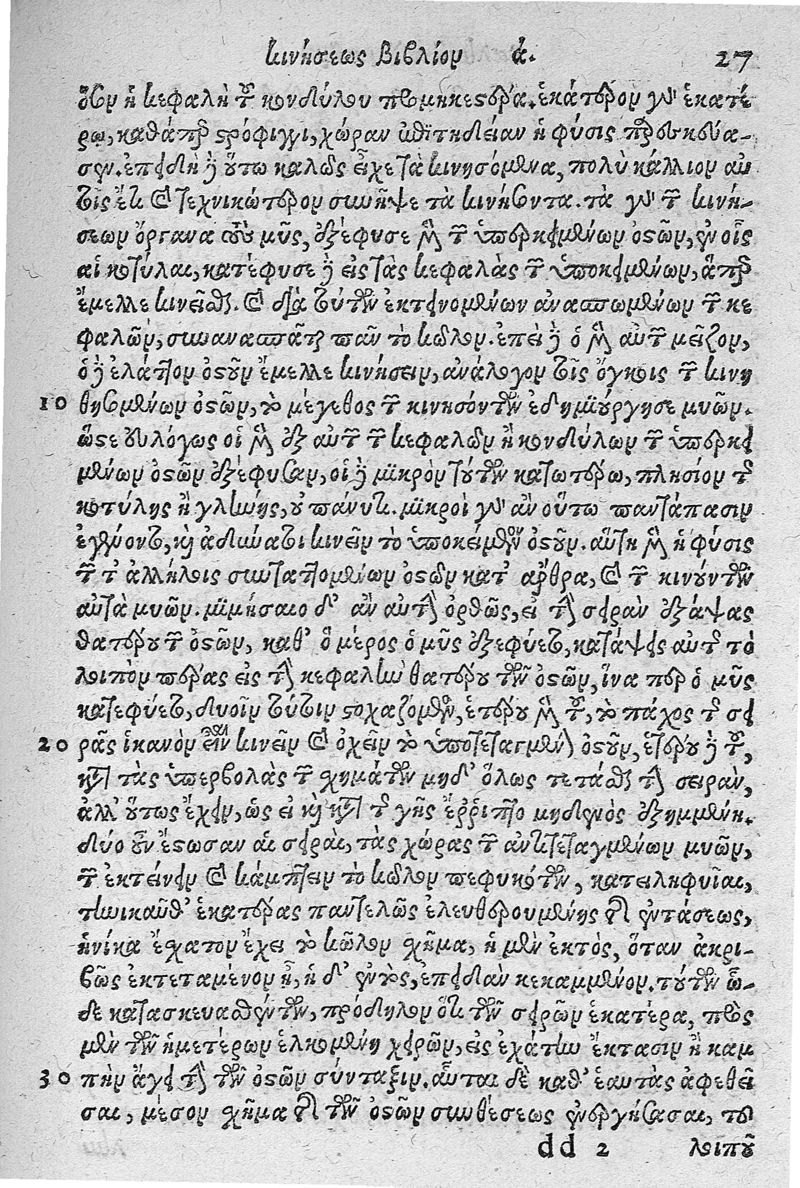 κινήσεως βιβλίον ά. 27
δων ἡ κεφαλὴ τοῦ κονδύλου προμηκεστέρα. ἑκάτερον γὰρ ἑκατέ
ρῳ, καθάπερ στρόφιγγι, χώραν ἐπιτηδείαν ἡ φύσις παρεσκεύα-
σεν. ἐπειδὴ δὲ οὕτω καλῶς εἶχε τὰ κινησόμενα, πολὺ κάλλιον αὐ
τοῖς ἔτι καὶ τεχνικώτερον συνῆψε τὰ κινήσοντα. τὰ γὰρ τῆς κινή-
σεως ὄργανα τοὺς μῦς, ἐξέφυσε μὲν τῶν ὑπερκειμένων ὀστῶν, ἐν οἷς
αἱ κοτύλαι, κατέφυσε δὲ εἰς τὰς κεφαλὰς τῶν ὑποκειμένων, ἅπερ
ἔμελλε κινεῖσθαι. καὶ διὰ τοῦτο τῶν ἐκτεινομένων ἀνασπωμένων τῶν κε
φαλῶν, συνανασπᾶται πᾶν τὸ κῶλον. ἐπεὶ δὲ ὁ μὲν αὐτῶν μεῖζον,
ὁ δὲ ἐλάττον ὀστοῦν ἔμελλε κινήσειν, ἀνάλογον τοῖς ὄγκοις τῶν κινη
10 θησομένων ὀστῶν, τὸ μέγεθος τῶν κινησόντων ἐδημιούργησε μυῶν.
ὥστε εὐλόγως οἱ μὲν ἐξ αὐτῶν τῶν κεφαλῶν ἢ κονδύλων τῶν ὑπερκει
μένων ὀστῶν ἐξέφυσαν, οἱ δὲ μικρὸν τούτων κατωτέρω, πλησίον τῆς
κοτύλης ἢ γλήνης, οὐ πάνυ τι. μικροὶ γὰρ ἂν οὕτω παντάπασιν
ἐγένοντο, καὶ ἀδύνατοι κινεῖν τὸ ὑποκείμενον ὀστοῦν. αὕτη μὲν ἡ φύσις
τῶν τ' ἀλλήλοις συνταττομένων ὀστῶν κατ' ἄρθρα, καὶ τῶν κινούντων
αὐτὰ μυῶν. μιμήσαιο δ' ἂν αὐτὴν ὀρθῶς, εἰ τὴν σειρὰν ἐξάψας
θατέρου τῶν ὀστῶν, καθ' ὃ μέρος ὁ μῦς ἐξεφύετο, κατάψεις αὐτῆς τὸ
λοιπὸν πέρας εἰς τὴν κεφαλὴν θατέρου τῶν ὀστῶν, ἵνα περ ὁ μῦς
κατεφύετο, δυοῖν τούτοιν στοχαζόμενος, ἑτέρου μὲν τοῦ, τὸ πάχος τῆς σει
20 ρᾶς ἱκανὸν εἶναι κινεῖν καὶ ὀχεῖν τὸ ὑποτεταγμένον ὀστοῦν, ἑτέρου δὲ τοῦ,
κατὰ τὰς ὑπερβολὰς τῶν σχημάτων μηδ' ὅλως τετάσθαι τὴν σειρὰν,
ἀλλ' οὕτως ἔχειν, ὡς εἰ καὶ κατὰ τῆς γῆς ἔῤῥιπτο μηδενὸς ἐξημμένη.
δύο οὖν ἔστωσαν αἱ σειραὶ, τὰς χώρας τῶν ἀντιτεταγμένων μυῶν,
τῶν ἐκτείνειν καὶ κάμπτειν τὸ κῶλον πεφυκότων, κατειληφυῖαι,
τηνικαῦθ' ἑκατέρας παντελῶς ἐλευθερουμένης τῆς ἐντάσεως,
ἡνίκα ἔσχατον ἔχει τὸ κῶλον σχῆμα, ἡ μὲν ἐκτὸς, ὅταν ἀκρι-
βῶς ἐκτεταμένον ᾖ, ἡ δ' ἐντὸς, ἐπειδὰν κεκαμμένον. τούτων ὧ-
δε κατασκευασθέντων, πρόδηλον ὅτι τῶν σειρῶν ἑκατέρα, πρὸς
μὲν τῶν ἡμετέρων ἑλκομένη χειρῶν, εἰς ἐσχάτην ἔκτασιν ἢ καμ
30 πὴν ἄγει τὴν τῶν ὀστῶν σύνταξιν. αὗται δὲ καθ' ἑαυτὰς ἀφεθεῖ
σαι, μέσον σχῆμα τῆς τῶν ὀστῶν συνθέσεως ἐνεργήσασαι, τοῦ
dd 2 λοιποῦ